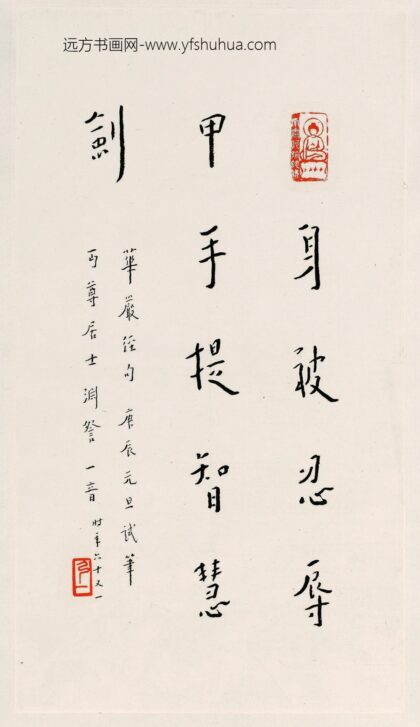 远方书画网-www.yfshuhua.com
身被忍辱
甲手提智慧
劍
華嚴經句 庚辰元旦試筆
丏尊居士淵詧 一音 时年六十又一